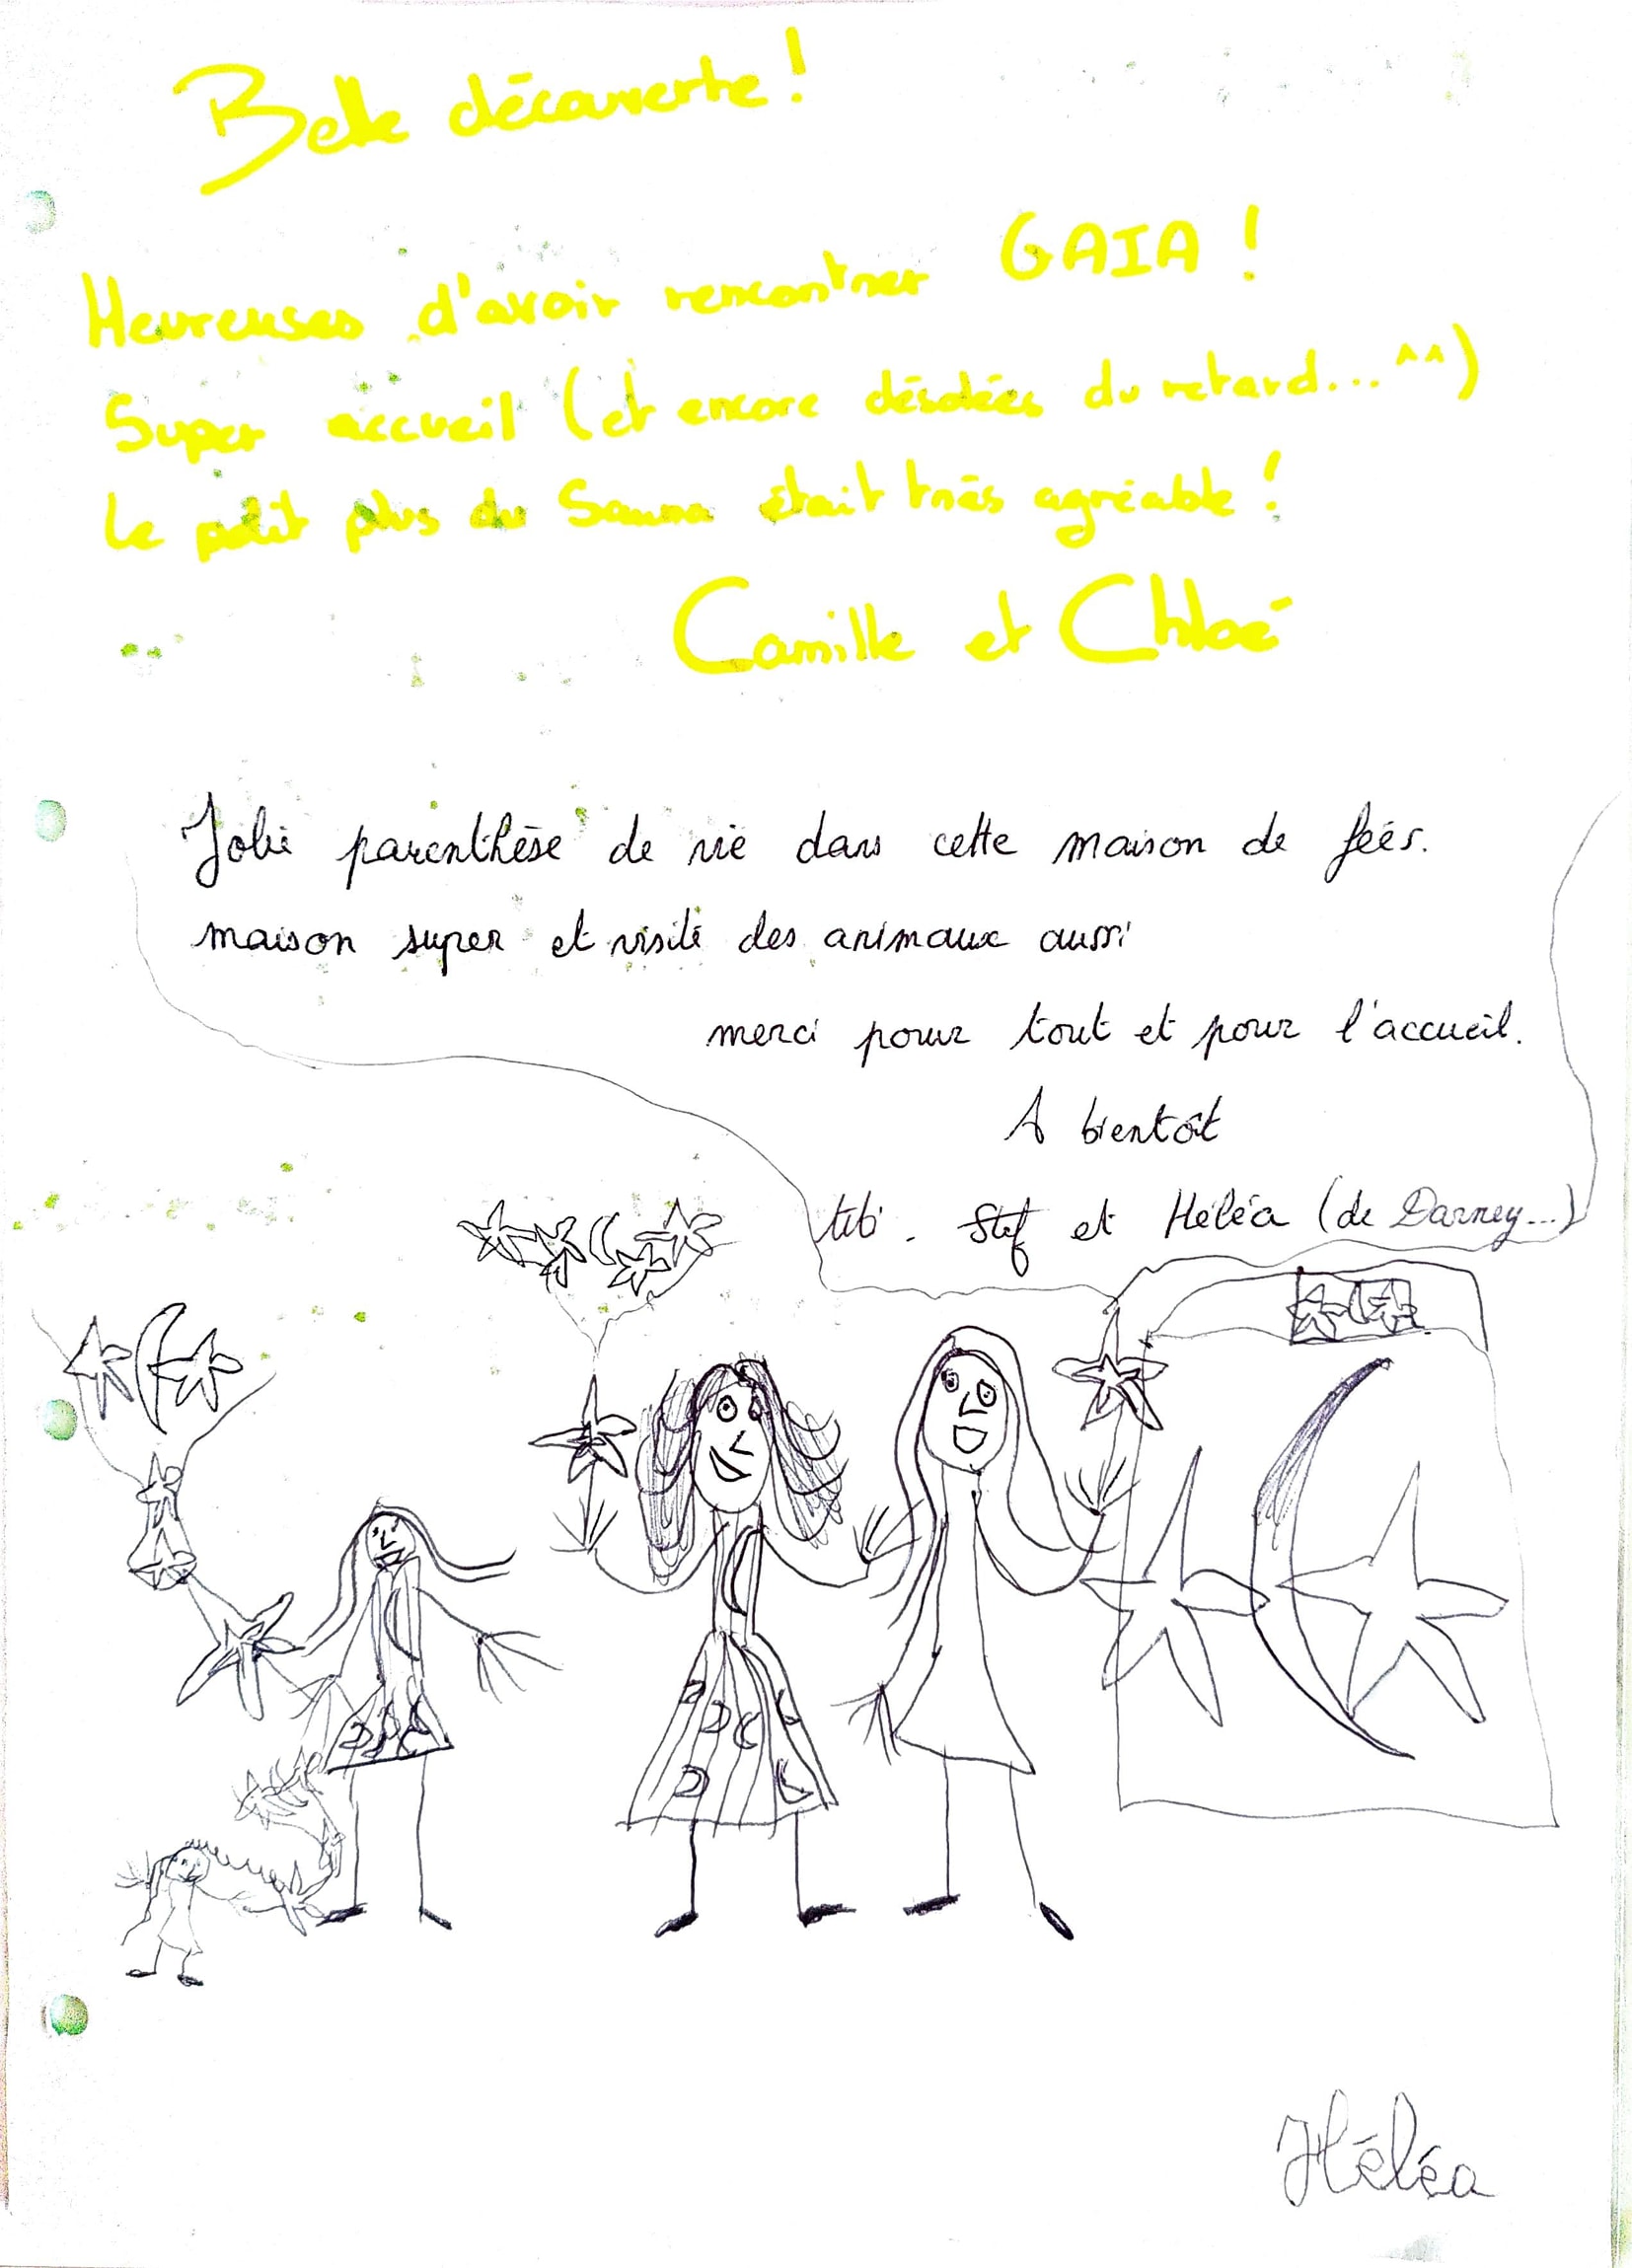 Belle découverte !
Heureuses d'avoir rencontrer GAIA !
Super accueil (et encore désolées du retard... ^^)
Le petit plus du Sauna était très agréable !
Camille et Chloé
Jolie parenthèse de vie dans cette maison de fées.
maison super et visite des animaux aussi
merci pour tout et pour l'accueil.
A bientôt
titi. Stef et Héléa (de Darney...)
Héléa